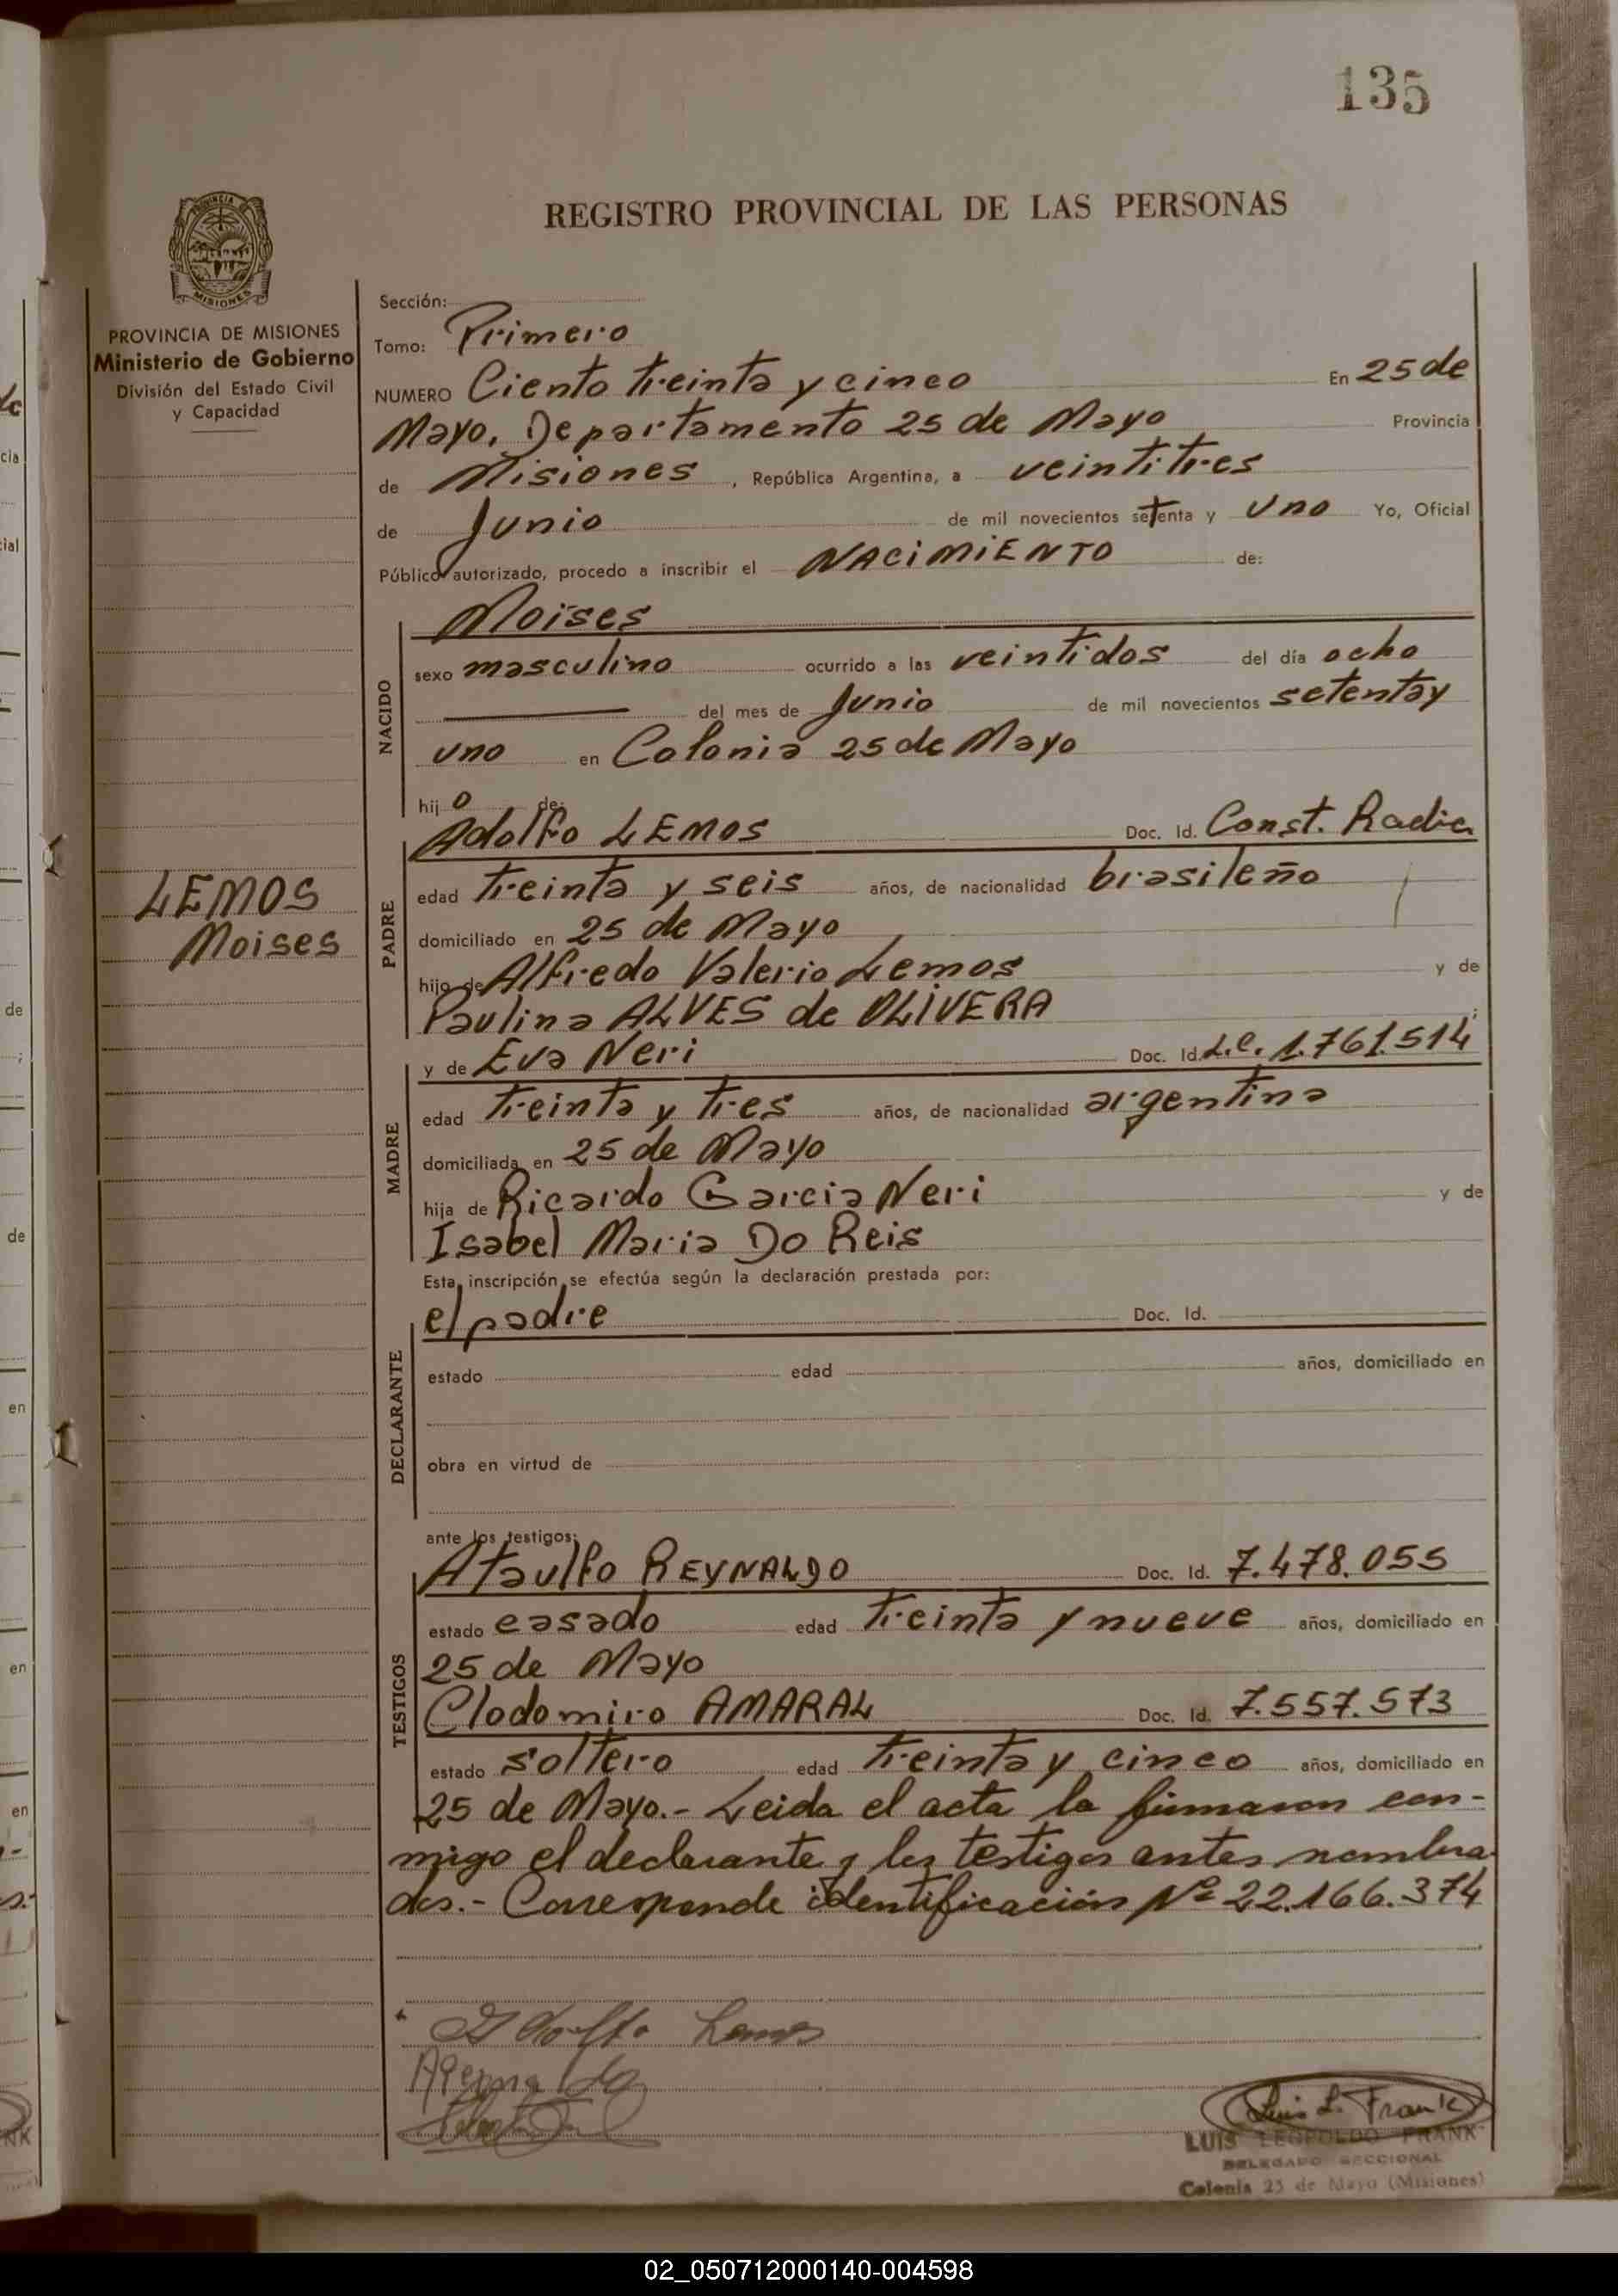 135
REGISTRO PROVINCIAL DE LAS PERSONAS
PROVINCIA DE
MISIONES
PROVINCIA DE MISIONES
Ministerio de Gobierno
División del Estado Civil
y Capacidad
LEMOS
Moises
Sección:
Tomo: Primero
NUMERO Ciento treinta y cinco En 25 de
Mayo, Departamento 25 de Mayo Provincia
de Misiones, República Argentina, a veintitres
de Junio de mil novecientos setenta y uno Yo, Oficial
Público autorizado, procedo a inscribir el NACIMIENTO de:
NACIDO
Moises
sexo masculino ocurrido a las veintidos del día ocho
del mes de Junio de mil novecientos setenta y
uno en Colonia 25 de Mayo
hijo de:
PADRE
Adolfo LEMOS Doc. Id. Const. Radic.
edad treinta y seis años, de nacionalidad brasileño
domiciliado en 25 de Mayo
hijo de Alfredo Valerio Lemos y de
Paulina ALVES de OLIVERA
MADRE
y de Eva Neri Doc. Id. L.C. 1.761.514
edad treinta y tres años, de nacionalidad argentina
domiciliada en 25 de Mayo
hija de Ricardo Garcia Neri y de
Isabel Maria Do Reis
Esta inscripción se efectúa según la declaración prestada por:
DECLARANTE
el padre Doc. Id.
estado edad años, domiciliado en
obra en virtud de
ante los testigos:
TESTIGOS
Ataulfo REYNALDO Doc. Id. 7.478.055
estado casado edad treinta y nueve años, domiciliado en
25 de Mayo
Clodomiro AMARAL Doc. Id. 7.557.573
estado soltero edad treinta y cinco años, domiciliado en
25 de Mayo.- Leida el acta la firmaron con-
migo el declarante y los testigos antes nombra-
dos.- Corresponde identificación Nº 22.166.374
Adolfo Lemos
Luis L. Frank
LUIS LEOPOLDO FRANK
DELEGADO SECCIONAL
Colonia 25 de Mayo (Misiones)
02_050712000140-004598